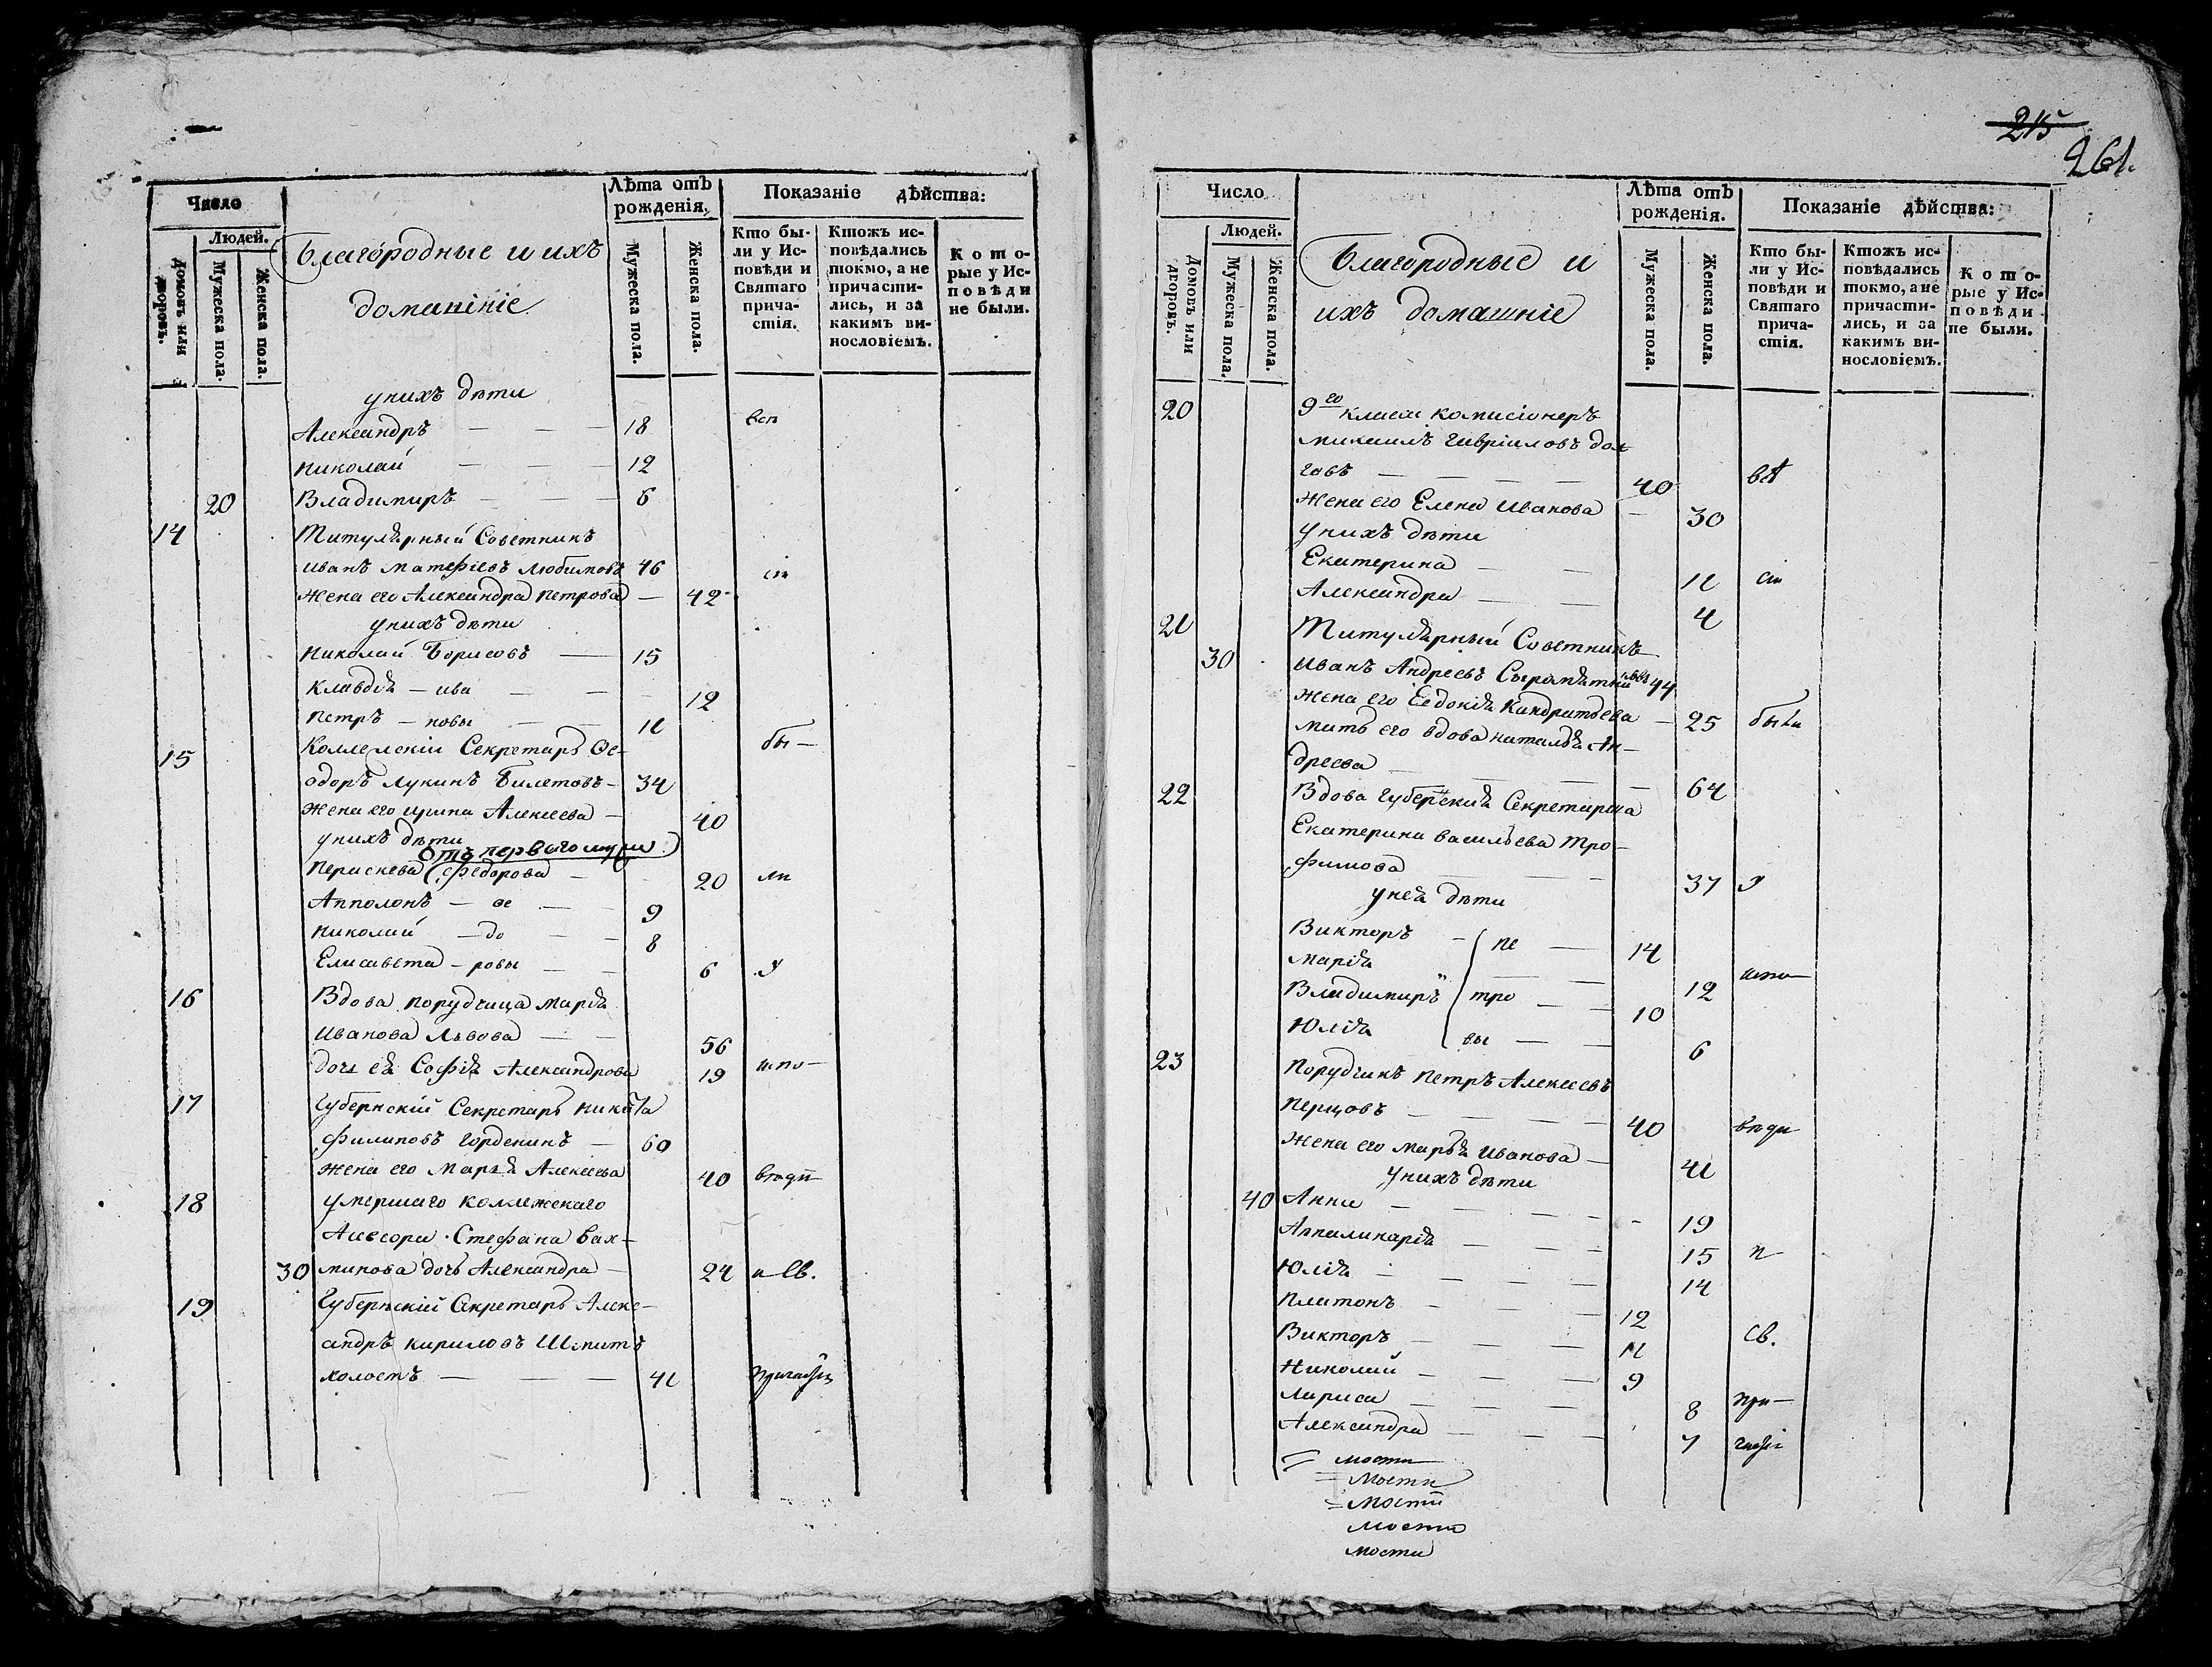 Число
Людей.
Домовъ или дворовъ.
Мужеска пола.
Женска пола.
Благородные и ихъ
домашніе
Лѣта отъ
рожденія.
Мужеска пола.
Женска пола.
Показаніе дѣйства:
Кто бы-
ли у Ис-
повѣди и
Святаго
прича-
стія.
Ктожъ ис-
повѣдались
токмо, а не
причасти-
лись, и за
какимъ ви-
нословіемъ.
Кото-
рые у Ис-
повѣди
не были.
у нихъ дѣти
Александръ — — — 18 всѣ
Николай — — — 12
20 Владимиръ — — — 6
14 Титулярный Советникъ
Иванъ Матфіевъ Любимовъ 46
Жена его Александра Петрова — 42
у нихъ дѣти
Николай Борисовъ — 15
Клавдія — ива — — 12
Петръ — новы — — 11
15 Коллежскій Секретарь Ѳе- бы —
одоръ Лукинъ Билетовъ — 34
Жена его Ирина Алексеева — 40
у нихъ дѣти
отъ перваго мужа
Параскева (Федорова) — 20 ли
Апполонъ — ѳе — — 9
Николай — до — — 8
Елисавета — ровы — — 6 у
16 Вдова порудчица Марія
Иванова Львова — — 56
дочь ея Софія Александрова 19 испо —
17 Губернскій Секретарь Никита
Филиповъ Горденинъ — 60
Жена его Марья Алексеева 40 вѣди
18 умершаго Коллежскаго
Ассесора Стефана Вах-
30 минова дочь Александра — 24 и Св.
19 Губернскій Секретарь Алекс-
андръ Кириловъ Шепитъ
холостъ — — — 41
215
261.
Число
Людей.
Домовъ или дворовъ.
Мужеска пола.
Женска пола.
Благородные и
ихъ домашніе
Лѣта отъ
рожденія.
Мужеска пола.
Женска пола.
Показаніе дѣйства:
Кто бы-
ли у Ис-
повѣди и
Святаго
прича-
стія.
Ктожъ ис-
повѣдались
токмо, а не
причасти-
лись, и за
какимъ ви-
нословіемъ.
Кото-
рые у Ис-
повѣди
не были.
20 9го класса комисіонеръ
Михаилъ Гавріиловъ Дол-
говъ — — — — 40
Жена его Елена Иванова — 30
у нихъ дѣти
Екатерина — — 11
Александра — — 4
21 Титулярный Советникъ
30 Иванъ Андреевъ Сыромятниковъ 44
Жена его Евдокія Кандратьева — 25 были
мать его вдова Наталья Ан-
дреева — — — — 64
22 Вдова Губернскія Секретарша
Екатерина Васильева Тро-
фимова — — — 37 у
у нея дѣти
Викторъ — пе — 14
Марія — — 12 испо —
Владимиръ тро — — 10
Юлія вы — — 6
23 Порудчикъ Петръ Алексеевъ
Перцовъ — — — — 40 вѣди
Жена его Марья Иванова — 41
у нихъ дѣти
40 Анна — — — — 19
Аппалинарія — — — 15 и
Юлія — — — — 14
Платонъ — — — 12
Викторъ — — — 11 Св.
Николай — — — 9
Лариса — — — 8 при —
Александра — — — 7
мости
мости
мости
мости
мости